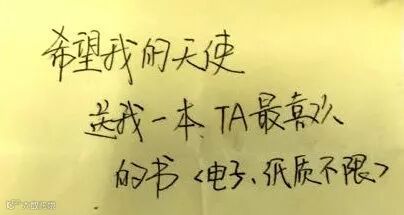 希望我的天使
送我一本、TA最喜欢
的书<电子、纸质不限>